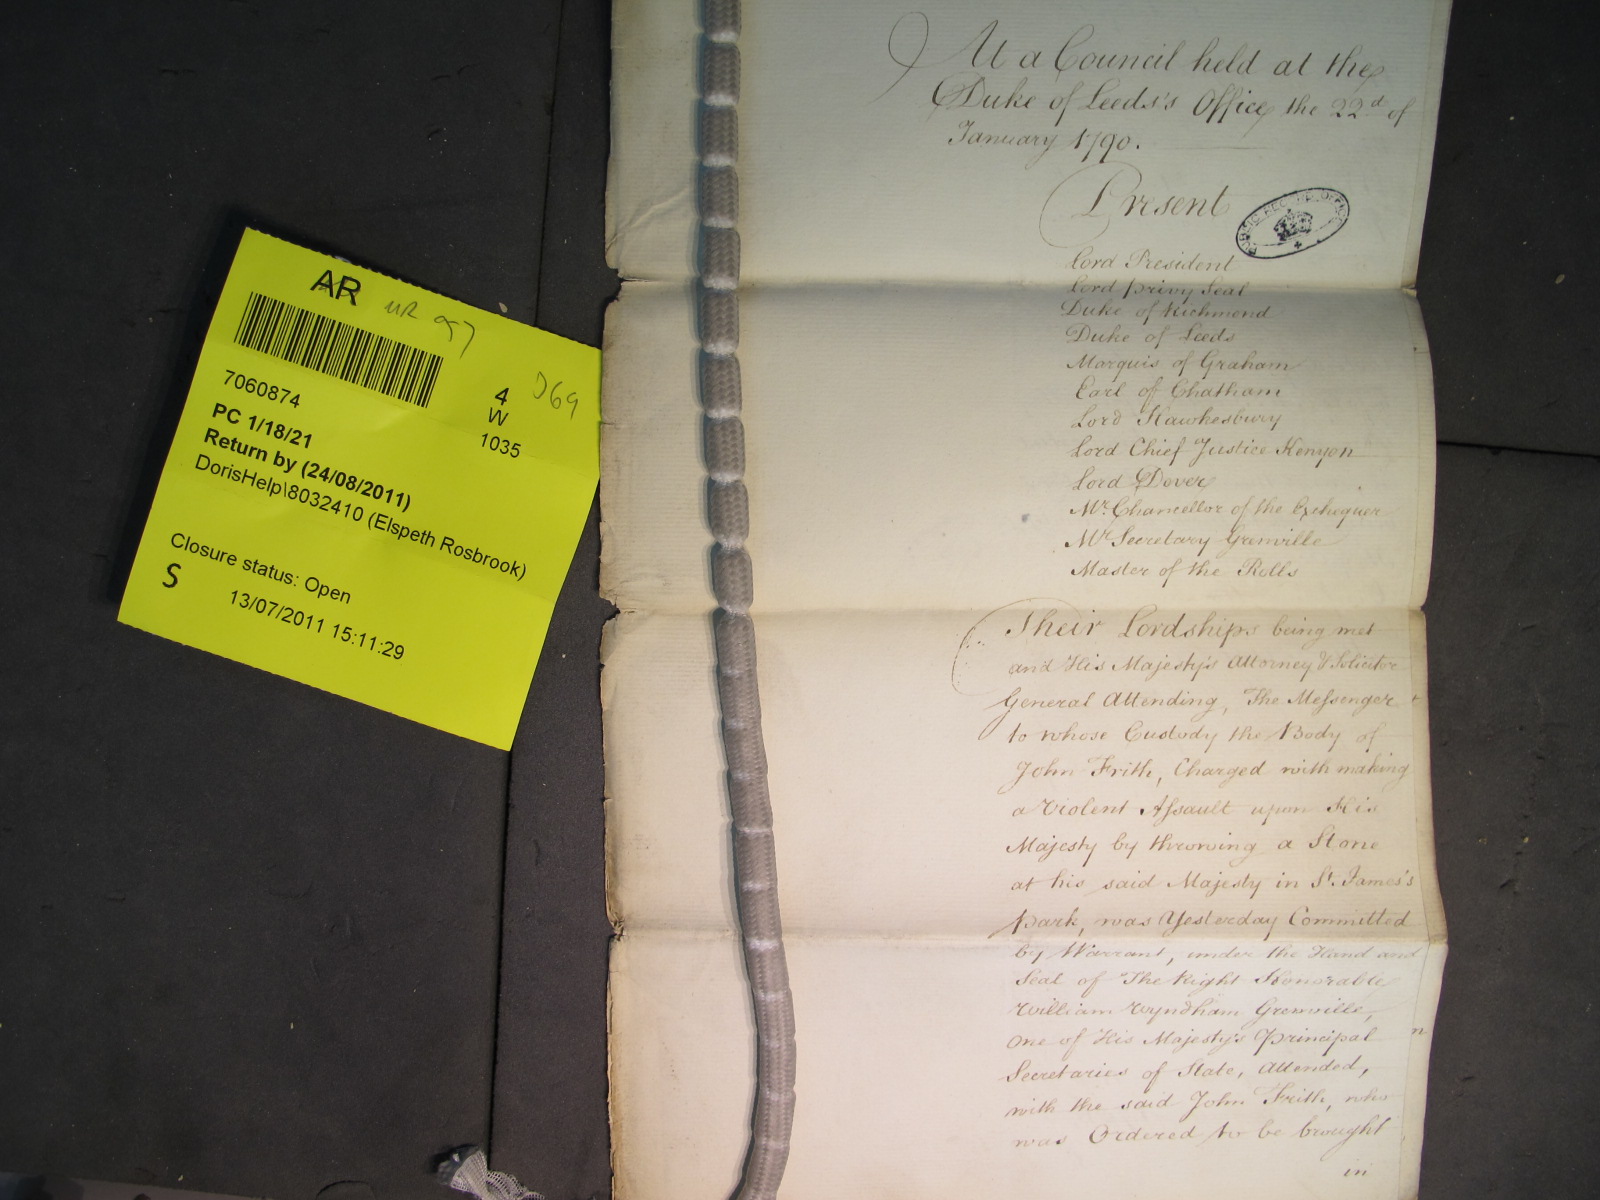 AR
UR
7060874
4
D69
W
PC 1/18/21
1035
Return by (24/08/2011)
DorisHelp\8032410 (Elspeth Rosbrook)
Closure status: Open
S
13/07/2011 15:11:29
At a Council held at the
Duke of Leeds's Office the 22d of
January 1790.
Present
PUBLIC RECORD OFFICE
Lord President
Lord Privy Seal
Duke of Richmond
Duke of Leeds
Marquis of Graham
Earl of Chatham
Lord Hawkesbury
Lord Chief Justice Kenyon
Lord Dover
Mr. Chancellor of the Exchequer
Mr Secretary Grenville
Master of the Rolls
Their Lordships being met
and His Majesty's Attorney & Solicitor
General Attending, The Messenger
to whose Custody the Body of
John Frith, Charged with making
a Violent Assault upon His
Majesty by throwing a Stone
at his said Majesty in St. James's
Park, was Yesterday Committed
by Warrant, under the Hand and
Seal of The Right Honorable
William Wyndham Grenville,
One of His Majesty's Principal
Secretaries of State, Attended,
with the said John Frith, who
was Ordered to be brought
in